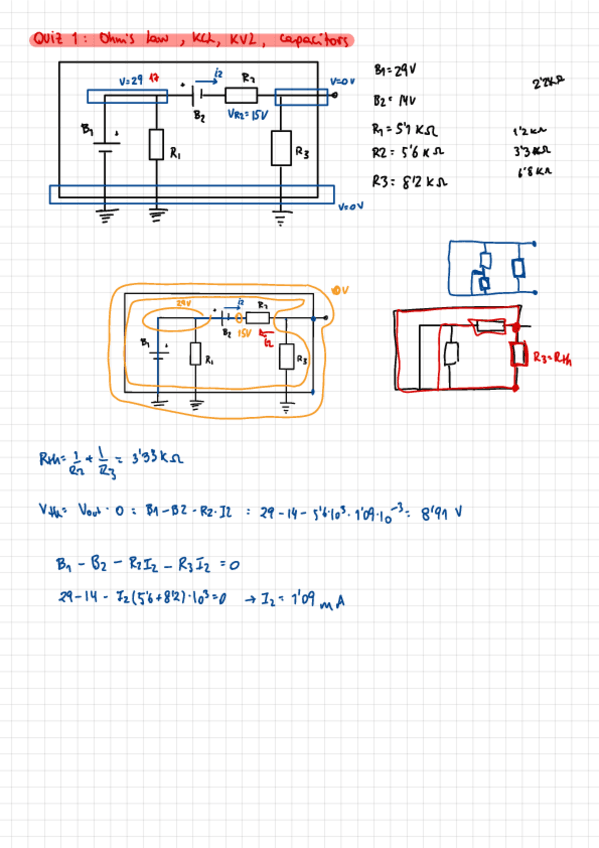 Quiz 1: Ohm's law, KCL, KVL, capacitors
V=29 17
i2
R2
V=0V
B1=29V
B2=14V
R1=5'1 KΩ
R2=5'6 KΩ
R3=8'2 KΩ
2'2KΩ
1'2 KΩ
3'3KΩ
6'8KΩ
+
B2
VR2=15V
B1
+
R1
R3
V=0V
0V
29V
i2
R2
B2
15V
i2
B1
R1
R3
R3=Rth
Rth= 1/R2 + 1/R3 = 3'33 KΩ
Vth= Vout - 0 = B1-B2-R2·I2 = 29-14-5'6·10³·1'09·10⁻³= 8'91 V
B1 - B2 - R2I2 - R3I2 =0
29-14- I2(5'6+8'2)·10³=0 → I2= 1'09 mA